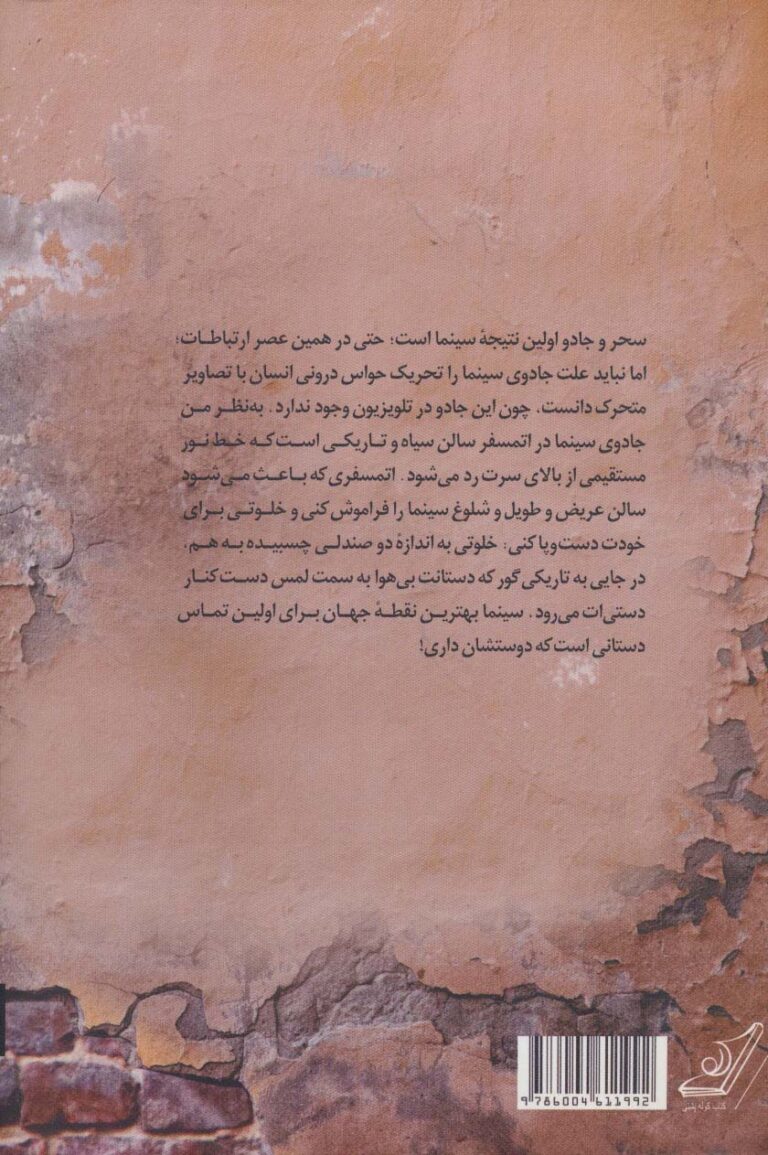 سحر و جادو اولین نتیجهٔ سینما است؛ حتی در همین عصر ارتباطات؛
اما نباید علت جادوی سینما را تحریک حواس درونی انسان با تصاویر
متحرک دانست، چون این جادو در تلویزیون وجود ندارد. به‌نظر من
جادوی سینما در اتمسفر سالن سیاه و تاریکی است که خط نور
مستقیمی از بالای سرت رد می‌شود. اتمسفری که باعث می‌شود
سالن عریض و طویل و شلوغ سینما را فراموش کنی و خلوتی برای
خودت دست‌وپا کنی؛ خلوتی به اندازهٔ دو صندلی چسبیده به هم،
در جایی به تاریکی گور که دستانت بی‌هوا به سمت لمس دست کنار
دستی‌ات می‌رود. سینما بهترین نقطهٔ جهان برای اولین تماس
دستانی است که دوستشان داری!
9 786004 611992
کتاب کوله پشتی